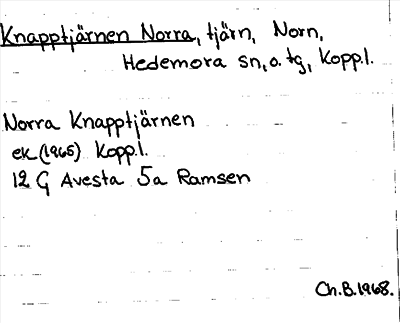 Knapptjärnen Norra, tjärn, Norn,
Hedemora sn, o. tg, Kopp.l.
Norra Knapptjärnen
ek (1965) Kopp.l.
12 G Avesta 5a Ramsen
Ch.B.1968.